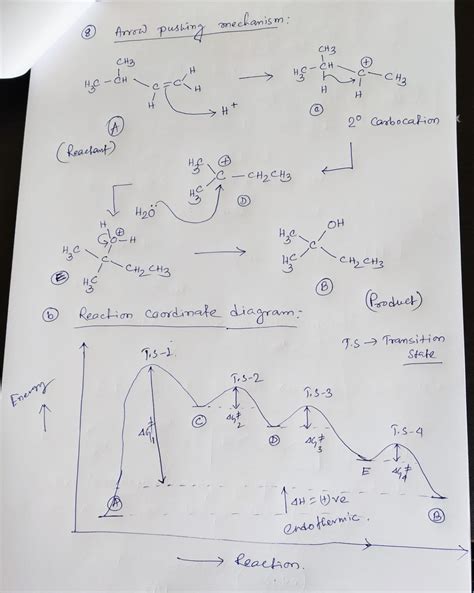 ⓐ Arrow pushing mechanism:
CH3
H3C - CH C = C H
H H
H+
Ⓐ
(Reactant)
CH3
H3C - CH - C⊕ - CH3
H H
ⓒ
2° Carbocation
H3C
H3C C⊕ - CH2CH3
Ⓓ
H2Ö
H
O⊕ - H
H3C
H3C C CH2CH3
Ⓔ
OH
H3C
H3C C CH2CH3
Ⓑ
(Product)
ⓑ Reaction coordinate diagram:
T.S → Transition
State
Energy
T.S-1
T.S-2
T.S-3
T.S-4
ΔG1‡
ΔG2‡
ΔG3‡
ΔG4‡
Ⓐ
C
D
E
Ⓑ
ΔH = (+)ve
endothermic.
Reaction.